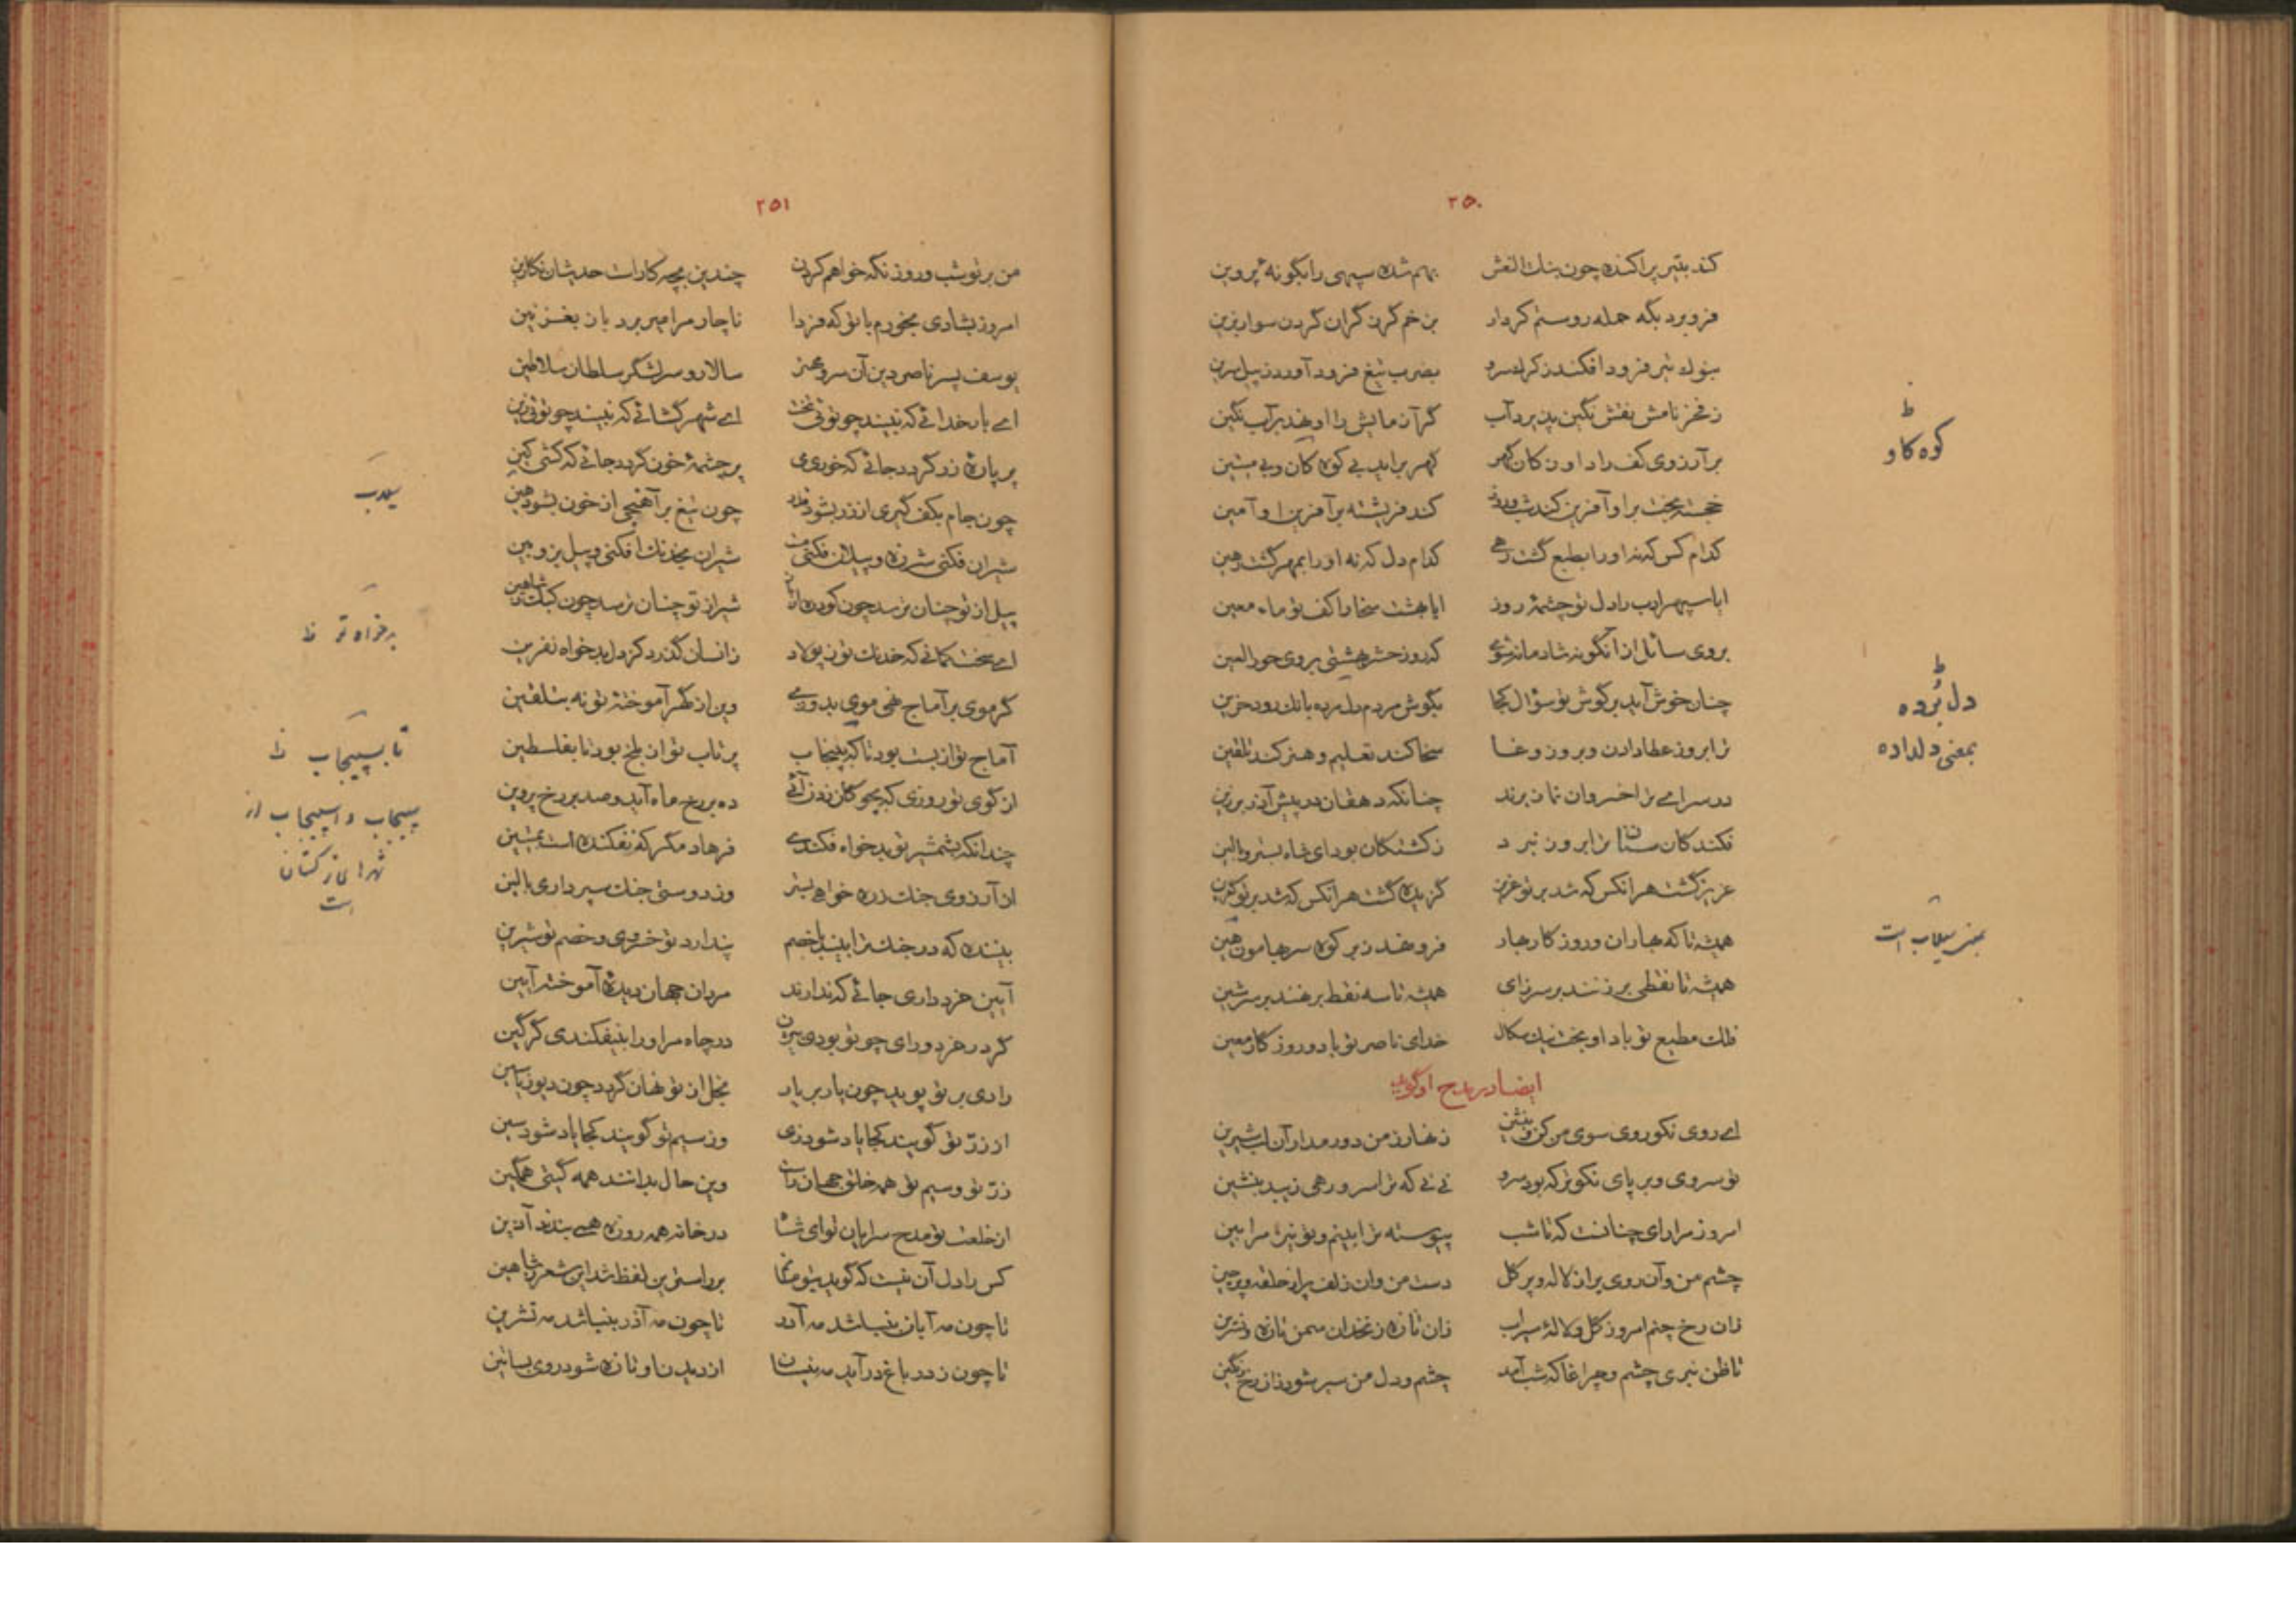 ۲۵۰
کند بتیر پراکنده چون بنات النعش بهم شده سپهی را بگونهٔ پروین
فرو برد بگه حمله روستم کردار بن خم کرن گران گردن سوار بزین
بنوک تیر فرود افکند ز کرک سرو بضرب تیغ فرود آورد ز پیل سرین
ز فخر نامش نقش نگین پذیرد آب گر آزمایش را او نهد بر آب نگین
بر آرزوی کف راد او ز کان گهر گهر برآید بی کوه کان و بی میتین
خجسته بخت بر او آفرین کند شب و روز کند فریشته بر آفرین او آمین
کدام کس که نه او را بطبع گشت رهی کدام دل که نه او را بمهر گشت رهین
ایا سپهر ادب را دل تو چشمهٔ روز ایا بهشت سخا را کف تو ماء معین
بروی سائل از آنگونه شادمانه شوی که روز حشر بهشتی بروی حور العین
چنان خوش آید بر گوش تو سؤال کجا بگوش مردم دل مرده بانک رود حزین
ترا بروز عطا دادن و بروز وغا سخا کند تعلیم و هنر کند تلقین
در سرای ترا خسروان نماز برند چنانکه دهقان در پیش آذر برزین
فکندگان سنان ترا بروز نبرد ز کشتگان بود ای شاه بستر و بالین
عزیز گشت هر آنکس که شد بر تو عزیز گزیده گشت هر آنکس که شد بر تو گزین
همیشه تا که بهاران و روزگار بهار فرو نهد ز بر کوه سر بهامون هین
همیشه تا نقطی بر زنند بر سر زای همیشه تا سه نقط بر نهند بر سر شین
فلک مطیع تو باد او بخت نیک سگال خدای ناصر تو باد و روزگار معین
ایضا در مدح او گوید
ای روی نکو روی سوی من کن و بنشین زنهار ز من دور مدار آن لب شیرین
تو سروی و بر پای نکوتر که بود سرو نی نی که ترا سرو رهی زیبد بنشین
امروز مرا رای چنانست که تا شب پیوسته ترا بینم و تو نیز مرا بین
چشم من و آن روی پر از لاله و پر گل دست من و آن زلف پر از حلقه و پر چین
زان رخ چنم امروز گل و لالهٔ سیراب زان تازه زنخدان سمن تازه و نسرین
تا ظن نبری چشم و چراغا که شب آمد چشم و دل من سیر شود زان رخ رنگین
ط
کوه کاو
ط
دل بُرده
بمعنی دلداده
بمعنی سیلاب است
۲۵۱
من بر تو شب و روز نگه خواهم کردن چندین بچه کار است حدیثان نگارین
امروز بشادی بخورم با تو که فردا ناچار مرا میر برد باز بغزنین
یوسف پسر ناصر دین آن سر و مهتر سالار و سر لشگر سلطان سلاطین
ای بار خدائی که نبیند چو توئی تخت ای شهر گشائی که نبیند چو توئی زین
پر پارهٔ زر گردد جائی که خوری می پر چشمهٔ خون گردد جائی که کشی کین
چون جام بکف گیری از زر بشود قدر چون تیغ بر آهنجی از خون بشود هین
شیران فکنی شرزه و پیلان فکنی مست شیران بخدنگ افکنی و پیل بزوبین
پیل از تو چنان ترسد چون گودره از باز شیر از تو چنان ترسد چون کبک ز شاهین
ای سخت کمانی که خدنگ تو ز پولاد زانسان گذرد کز دل بدخواه تو نفرین
گر موی بر آماج نهی موی بدوزی وین از گهر آموختهٔ تو نه بتلقین
آماج تو از بست بود تا که بپنجاب پرتاب تو از بلخ بود تا بفلسطین
از گوی تو روزی که بچوگان زدن آئی ده بر رخ ماه آید و صد بر رخ پروین
چندانکه بشمشیر تو بدخواه فکندی فرهاد مگر که نفکنده است بمیتین
از آرزوی جنگ زره خواهی بستر وز دوستی جنگ سپر داری بالین
بیننده که در جنگ ترا بیند با خصم پندارد تو خسروی و خصم تو شیرین
آیین خرد داری جائی که ندارند مردان جهان دیده آموخته آیین
گر در خرد و رای چو تو بودی بیژن در چاه مر او را بنیفکندی گرگین
رادی بر تو پوید چون یار بر یار بخل از تو نهان گردد چون دیو ز یاسین
از زر تو گویند کجا یاد شود زی وز سیم تو گویند کجا یاد شود سین
زر تو و سیم تو همه خلق جهان راست وین حال بدانند همه گیتی همگین
از خلعت تو مدح سرایان تو ای شاه در خانه همه روزه همی بندند آذین
کس را دل آن نیست که گوید بتو مانم بر راستی این لفظ شد این شعر ز شاهین
تا چون مه آبان بنباشد مه آذر تا چون مه آذر بنباشد مه تشرین
تا چون ز در باغ درآید مه نیسان از دیدن او تازه شود روی بساتین
سیلاب
بدخواه تو ظ
تا بسپیجاب ظ
سپیجاب و اسپیجاب از
شهرهای ترکستان
است